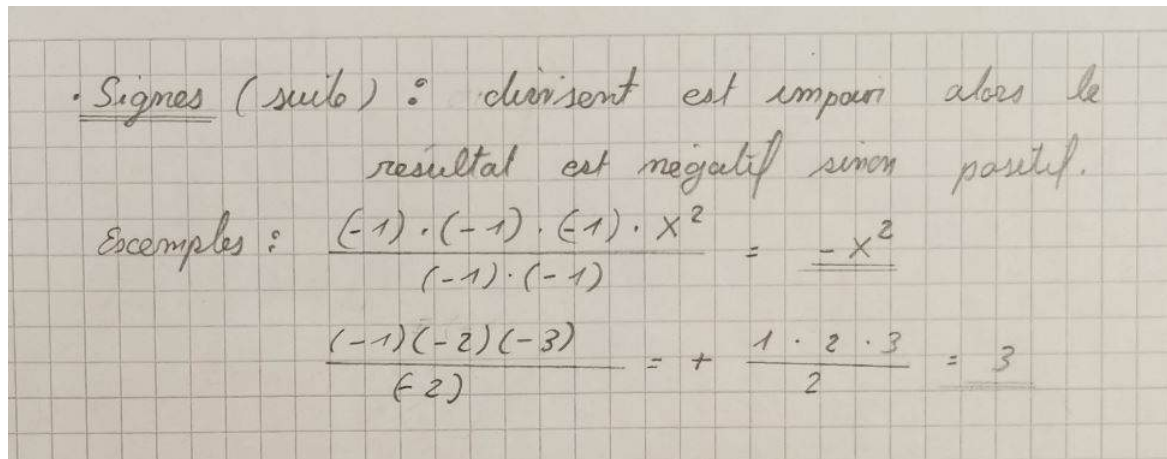 · Signes (suite) : divisent est impair alors le
résultat est négatif sinon positif.
Exemples : \frac{(-1) · (-1) · (-1) · x²}{(-1) · (-1)} = -x²
\frac{(-1)(-2)(-3)}{(-2)} = + \frac{1 · 2 · 3}{2} = 3